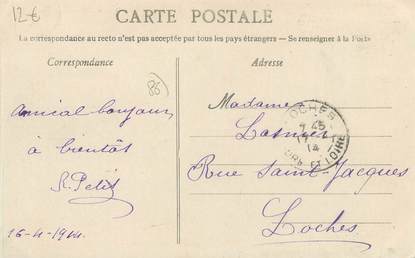 12€
CARTE POSTALE
La correspondance au recto n'est pas acceptée par tous les pays étrangers — Se renseigner à la Poste
Correspondance
Adresse
86
Madame
LOCHES
7 45
14
INDRE ET LOIRE
Amical bonjour
Lasnier
à bientôt
Rue Saint Jacques
R. Petit
Loches
16-4-1914.